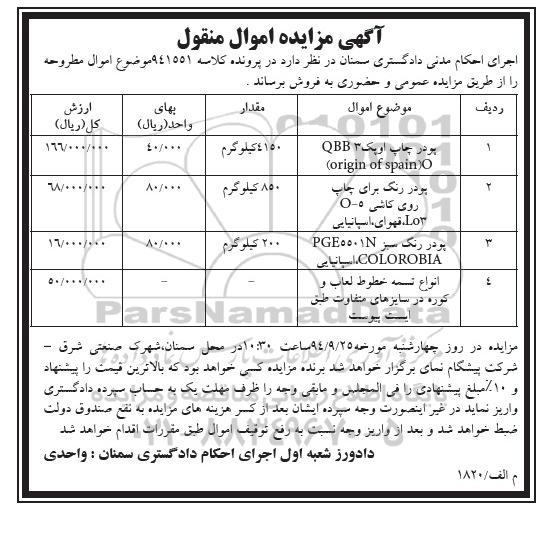 آگهی مزایده اموال منقول
اجرای احکام مدنی دادگستری سمنان در نظر دارد در پرونده کلاسه ۹۴۱۵۵۱موضوع اموال مطروحه
را از طریق مزایده عمومی و حضوری به فروش برساند .
ردیف موضوع اموال مقدار بهای واحد(ریال) ارزش کل(ریال)
۱ پودر چاپ اوپک۳ QBB O(origin of spain) ۴۱۵۰کیلوگرم ۴۰/۰۰۰ ۱۶۶/۰۰۰/۰۰۰
۲ پودر رنگ برای چاپ روی کاشی O-۵ Lo۳،قهوای،اسپانیایی ۸۵۰ کیلوگرم ۸۰/۰۰۰ ۶۸/۰۰۰/۰۰۰
۳ پودر رنگ سبز PGE۵۵۰۱N COLOROBIA،اسپانیایی ۲۰۰ کیلوگرم ۸۰/۰۰۰ ۱۶/۰۰۰/۰۰۰
۴ انواع تسمه خطوط لعاب و کوره در سایزهای متفاوت طبق لیست پیوست - - ۵۰/۰۰۰/۰۰۰
مزایده در روز چهارشنبه مورخه۹۴/۹/۲۵ساعت ۱۰:۳۰در محل سمنان،شهرک صنعتی شرق –
شرکت پیشگام نمای برگزار خواهد شد برنده مزایده کسی خواهد بود که بالاترین قیمت را پیشنهاد
و ۱۰٪مبلغ پیشنهادی را فی المجلس و مابقی وجه را ظرف مهلت یک به حساب سپرده دادگستری
واریز نماید در غیر اینصورت وجه سپرده ایشان بعد از کسر هزینه های مزایده به نفع صندوق دولت
ضبط خواهد شد و بعد از واریز وجه نسبت به رفع توقیف اموال طبق مقررات اقدام خواهد شد
دادورز شعبه اول اجرای احکام دادگستری سمنان : واحدی
م الف/۱۸۲۰
ParsNamadData